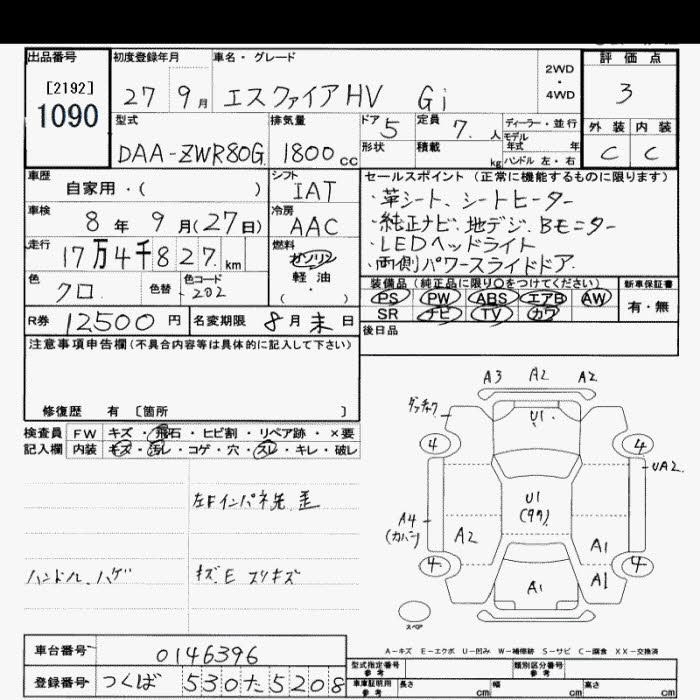 出品番号
[2192]
1090
初度登録年月
27 9月
車名・グレード
エスクァイアHV Gi
2WD
・
4WD
評価点
3
外装 内装
C C
型式
DAA-ZWR80G
排気量
1800cc
ドア 5
形状
定員 7.人
積載 kg
ディーラー・並行
モデル
年式 年
ハンドル 左・右
車歴
自家用・( )
シフト
IAT
車検
8年 9月(27日)
冷房
AAC
走行
17万4千827km
燃料
ガソリン
軽油
( ・ )
色
クロ
色替
色コード
202
セールスポイント (正常に機能するものに限ります)
・革シート、シートヒーター
・純正ナビ、地デジ、Bモニター
・LEDヘッドライト
・両側パワースライドドア
装備品 (純正品に限り○をつけてください)
PS PW ABS エアB AW
SR ナビ TV カワ
新車保証書
有・無
R券 12500円
名変期限 8月末日
後日品
注意事項申告欄(不具合内容等は具体的に記入して下さい)
修復歴 有 〔箇所 〕
検査員 FW キズ・飛石・ヒビ割・リペア跡・×要
記入欄 内装 キズ・汚レ・コゲ・穴・スレ・キレ・破レ
左Fインパネ先 歪
ハンドル、ハゲ
キズ、E スリキズ
A3 A2 A2
U1
4 4
UA2
U1
(タク)
A4
(カバー)
A2
A1
4 4
A1
A1
スペア
A-キズ E-エクボ U-凹み W-補修跡 S-サビ C-腐食 XX-交換済
車台番号 0146396
登録番号 つくば 530た5208
型式指定番号
参考
類別区分番号
参考
車庫証明用
参考
長さ cm 幅 cm 高さ cm